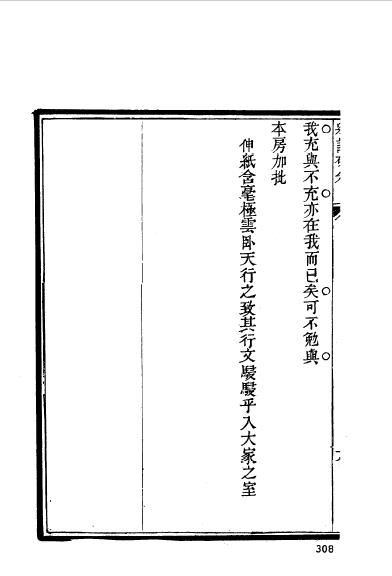 我充與不充亦在我而已矣可不勉與
本房加批
伸紙含毫極雲臥天行之致其行文駸駸乎入大家之室
308